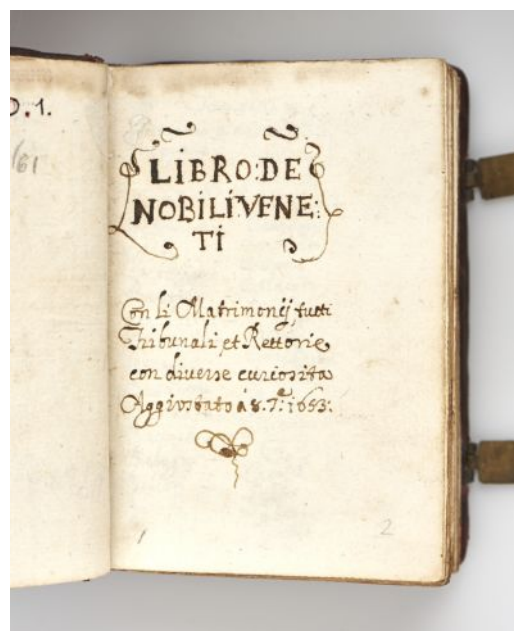 D.1.
/61
LIBRO:DE
NOBILI:VENE:
TI
Con li Matrimonij tutti
Tribunali et Rettorie
con diverse curiosita
Aggiustato a 8. 7.e 1653:
1
2